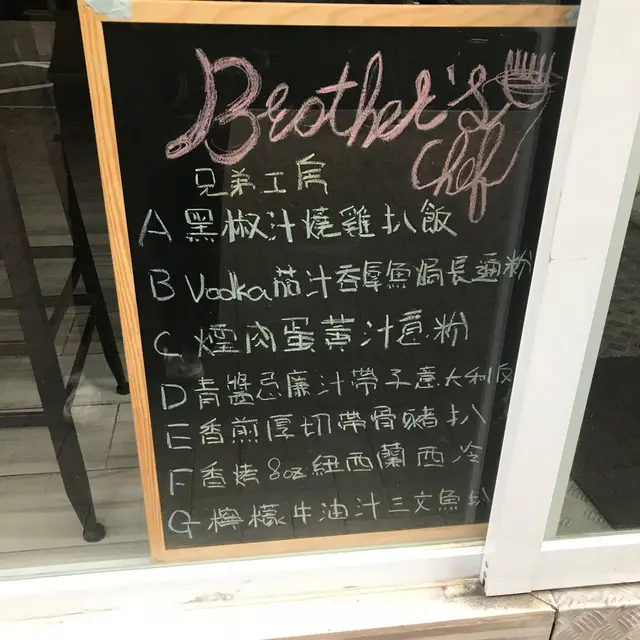 Brother's
Chef
兄弟工房
A 黑椒汁燒雞扒飯
B Vodka茄汁吞拿魚焗長通粉
C 煙肉蛋黃汁意粉
D 青醬忌廉汁帶子意大利飯
E 香煎厚切帶骨豬扒
F 香烤8oz紐西蘭西冷
G 檸檬牛油汁三文魚扒